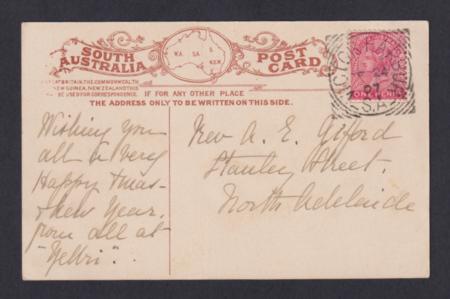 SOUTH AUSTRALIA
POST CARD
W.A. S.A.
N.S.W.
BRITAIN, THE COMMONWEALTH,
NEW GUINEA, NEW ZEALAND THIS
BE USED FOR CORRESPONDENCE.
IF FOR ANY OTHER PLACE
THE ADDRESS ONLY TO BE WRITTEN ON THIS SIDE.
Wishing you
all a very
Happy Xmas
& New Year.
from all at
"Yelbri".
Rev A. E. Gifford
Stanley Street.
North Adelaide
07
S.A